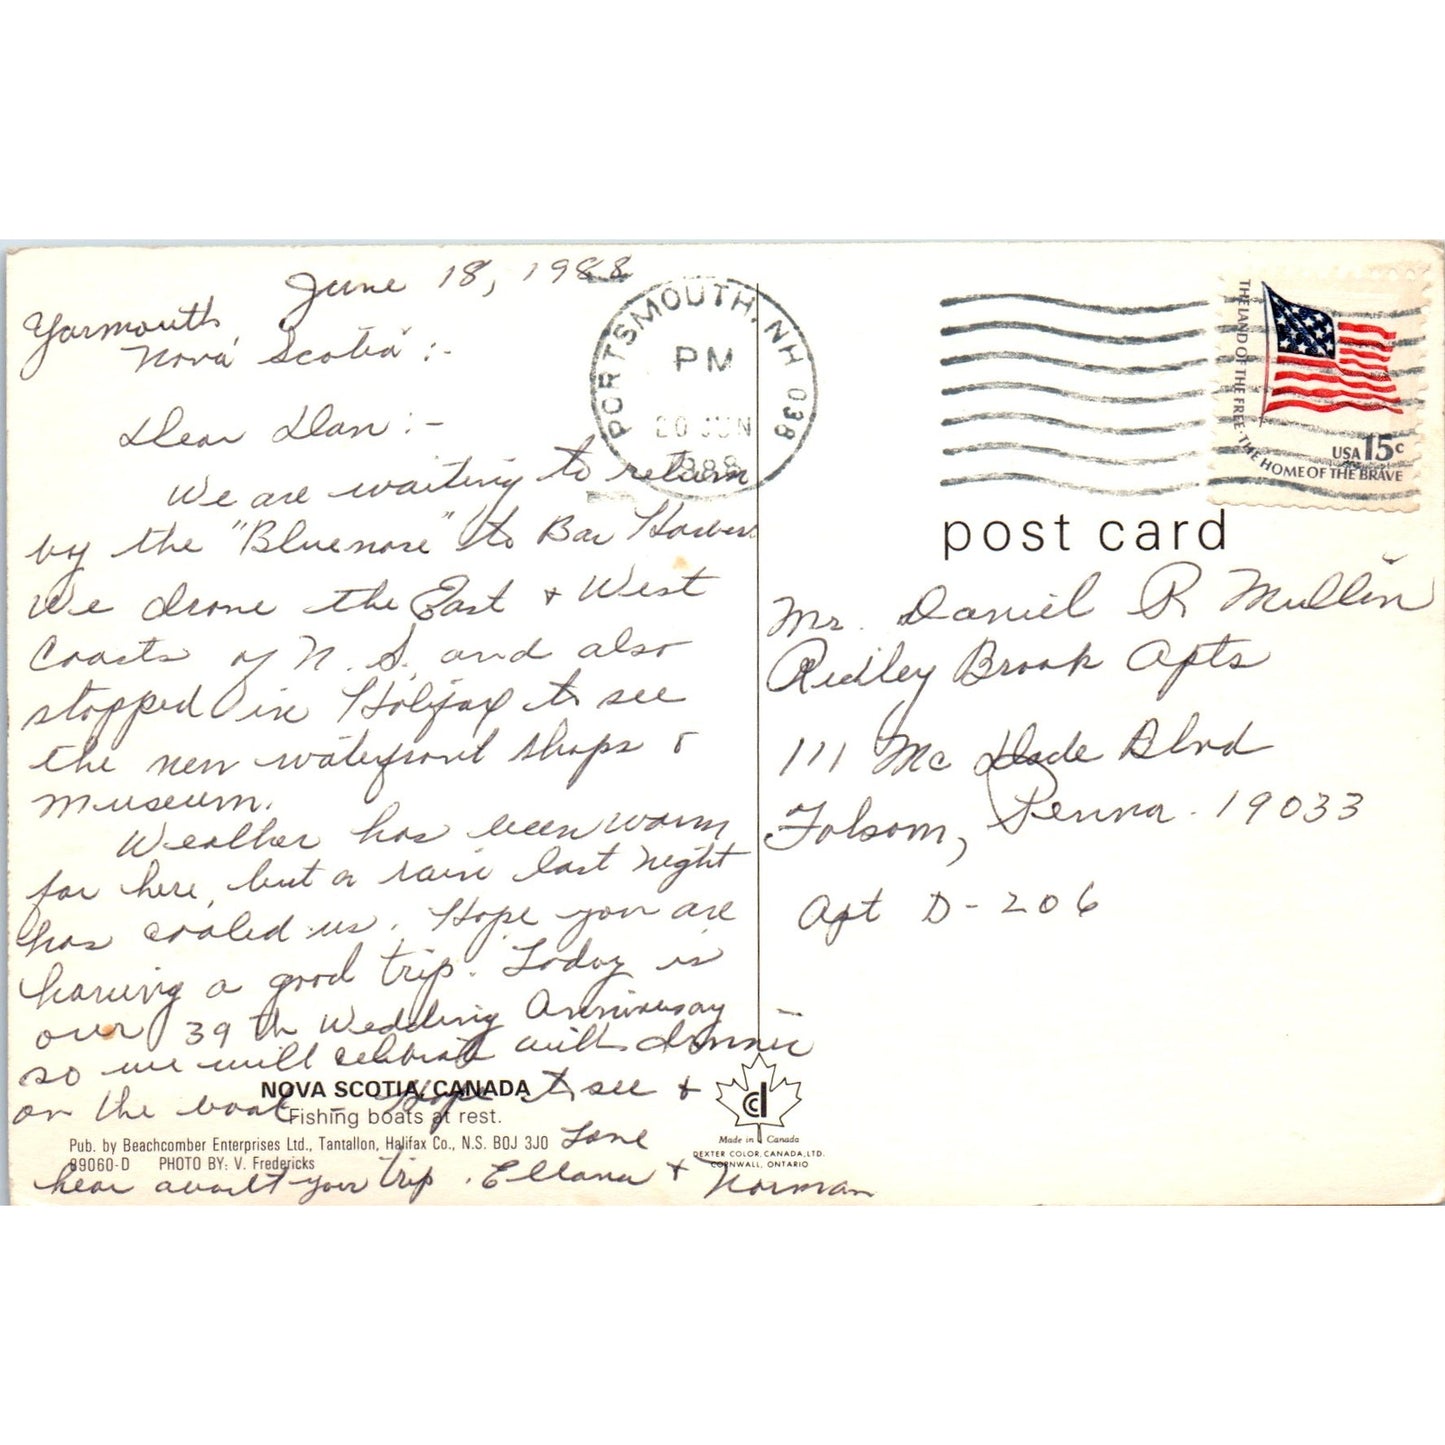 June 18, 1988
Yarmouth
Nova Scotia :-
Dear Dan :-
We are waiting to return
by the "Bluenose" to Bar Harbor.
We drove the East & West
Coasts of N. S. and also
stopped in Halifax to see
the new waterfront shops &
museum.
Weather has been warm
for here, but a rain last night
has cooled us. Hope you are
having a good trip. Today is
our 39th Wedding Anniversary
so we will celebrate with dinner
on the boat - Hope to see &
hear about your trip. Love
Ellana & Norman
NOVA SCOTIA, CANADA
Fishing boats at rest.
Pub. by Beachcomber Enterprises Ltd., Tantallon, Halifax Co., N.S. B0J 3J0
89060-D PHOTO BY: V. Fredericks
cd
Made in Canada
DEXTER COLOR, CANADA, LTD.
CORNWALL, ONTARIO
PORTSMOUTH, NH 038
PM
20 JUN
1988
THE LAND OF THE FREE · THE HOME OF THE BRAVE
USA 15c
post card
Mr. Daniel R Mullin
Ridley Brook Apts
111 Mc Dade Blvd
Folsom, Penna. 19033
Apt D-206